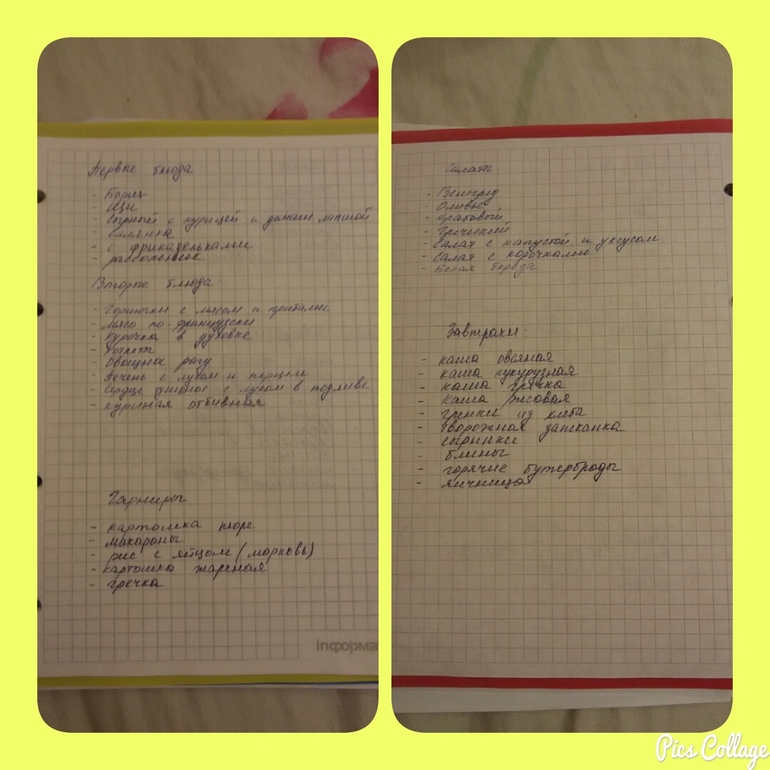 Первые блюда
- Борщ
- Щи
- Сырный с курицей и домаш. лапшой
- Солянка
- с фрикадельками
- рассольник
Вторые блюда:
- Горшочки с мясом и грибами
- Мясо по-французски
- Курочка в духовке
- Котлеты
- Овощное рагу
- Печень с луком и перцем
- Сердце с луком в подливе
- куриная отбивная
Гарниры
- картошка пюре
- макароны
- рис с яйцом (морковь)
- картошка жареная
- гречка
інформа
Салаты
- Винегред
- Оливье
- Крабовый
- Греческий
- Салат с капустой и уксусом
- Салат с корочками
- Белая береза
Завтраки:
- каша овсяная
- каша кукурузная
- каша гречка
- каша рисовая
- гренки из хлеба
- творожная запеканка
- сырники
- блины
- горячие бутерброды
- яичница
Pics Collage